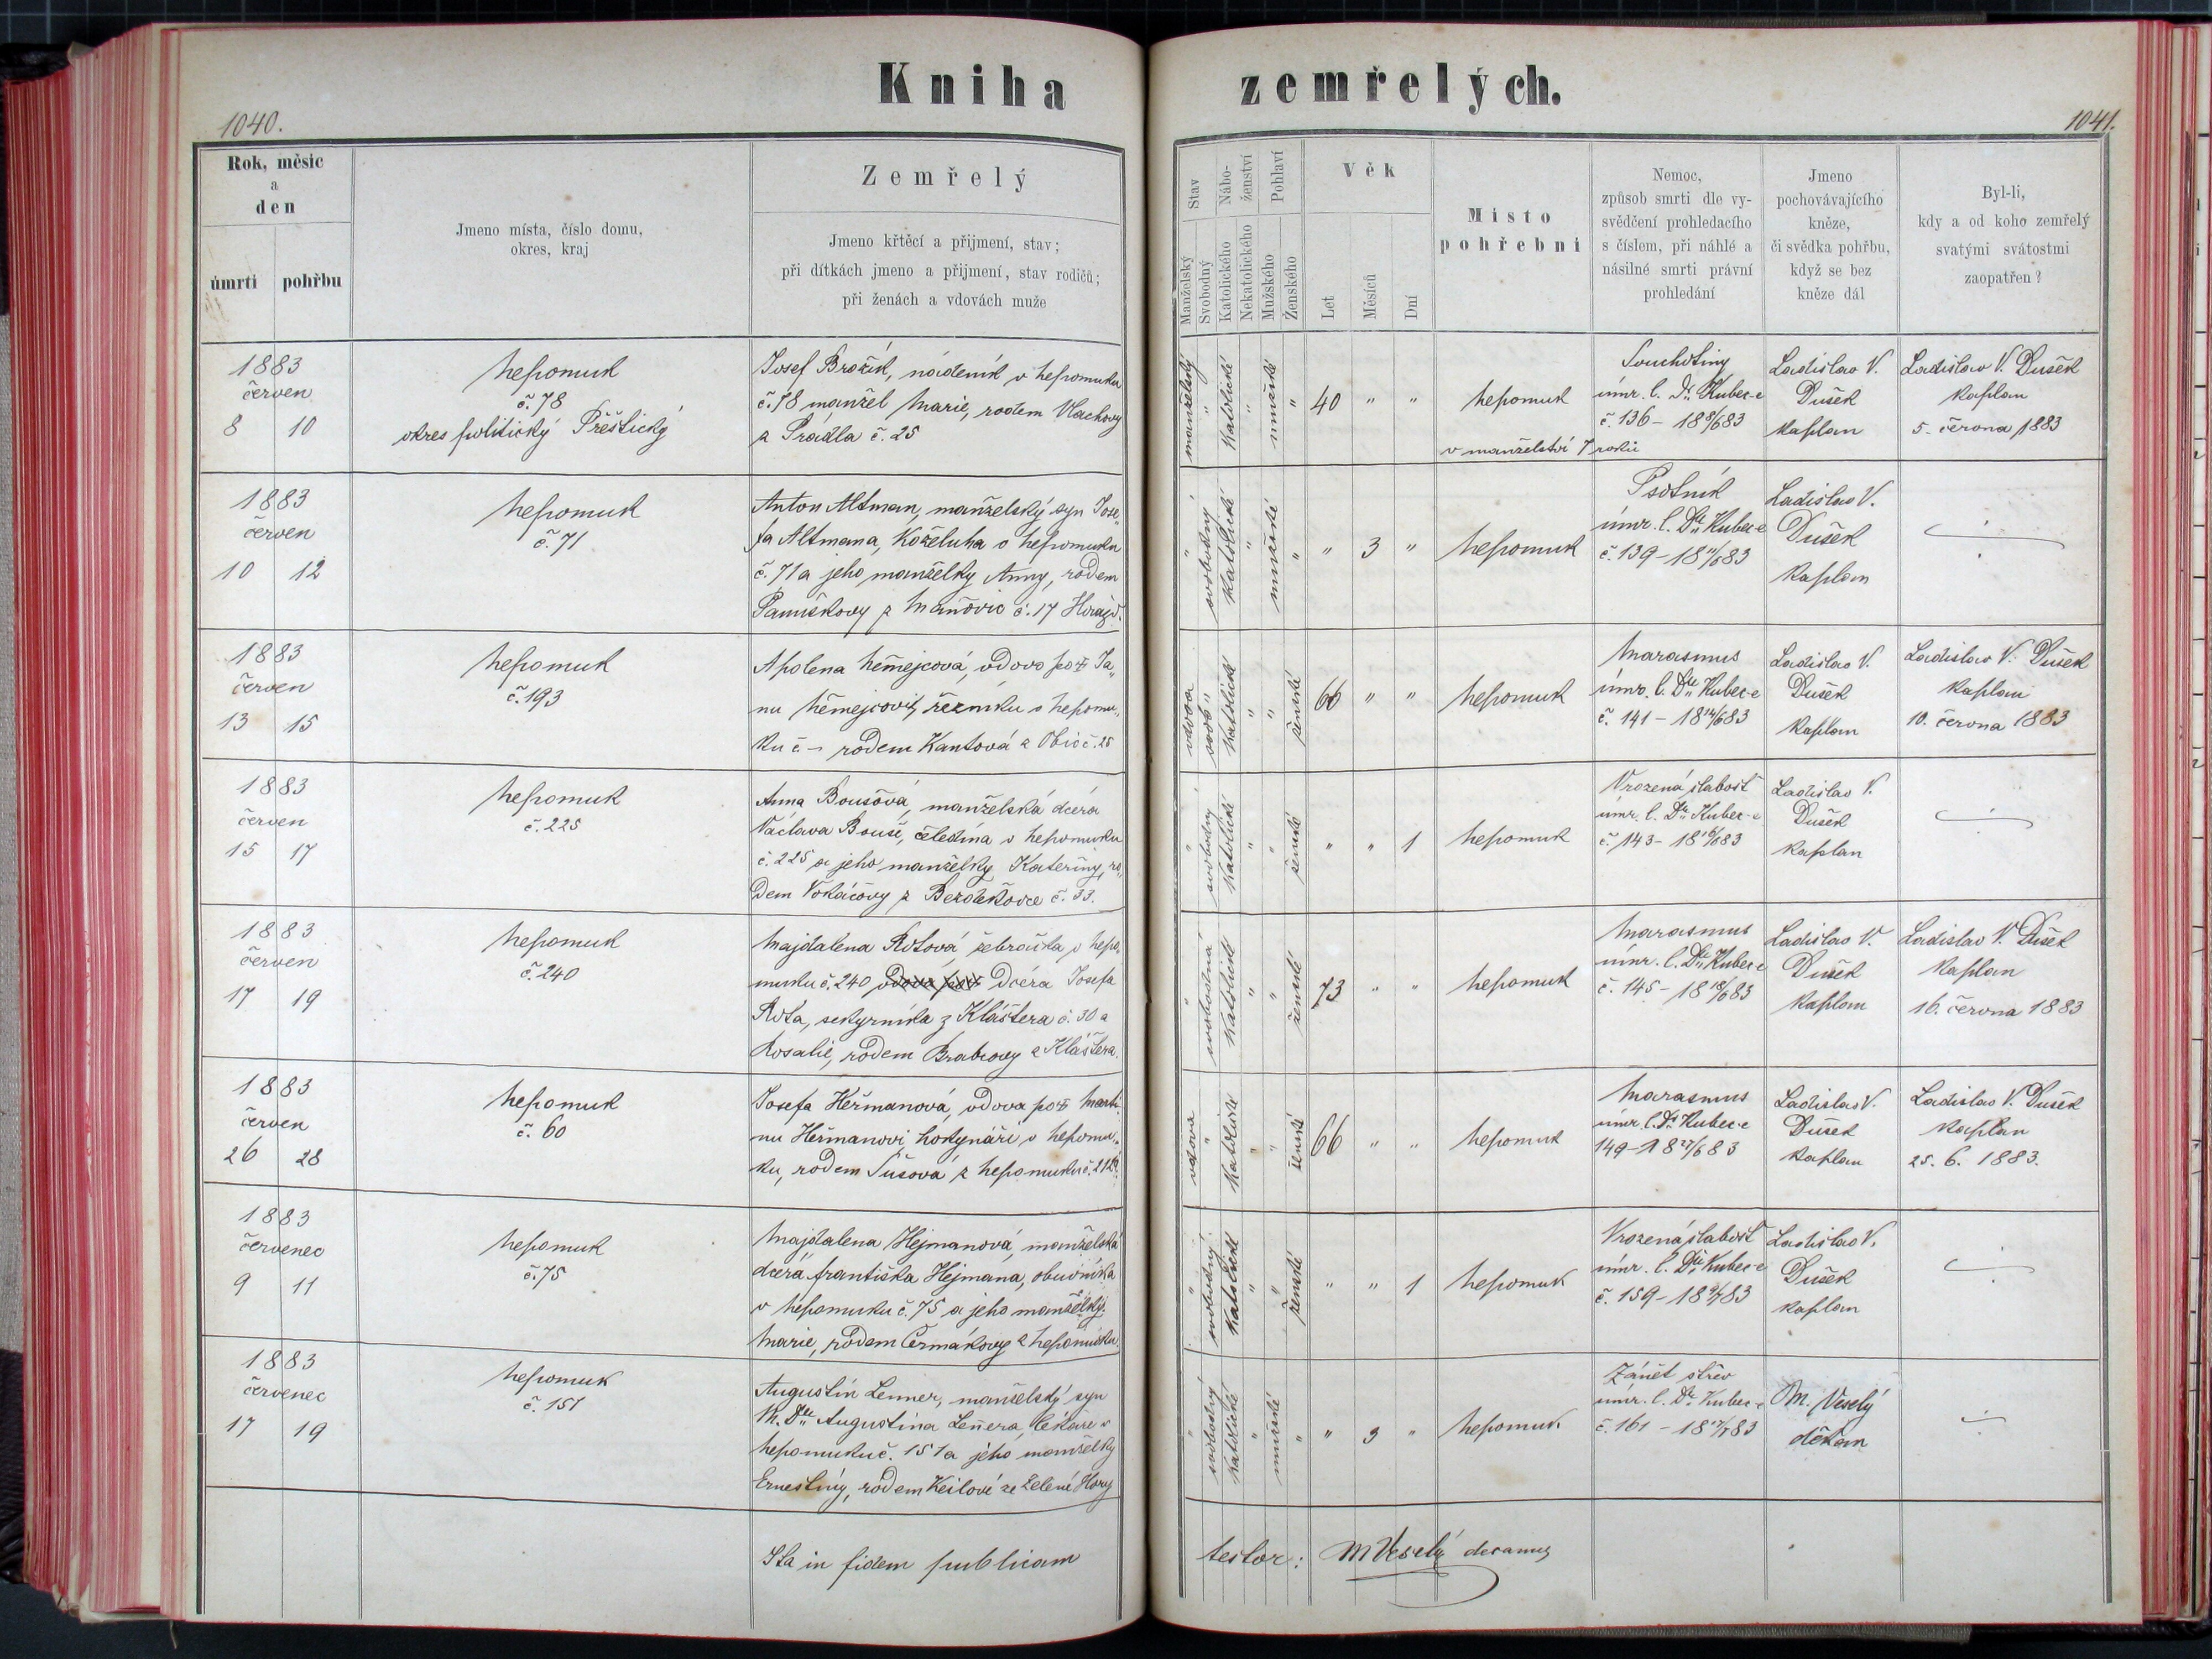 Kniha zemřelých.
1040.
1041.
Rok, měsíc
a
den
úmrtí pohřbu
Jmeno místa, číslo domu,
okres, kraj
Zemřelý
Jmeno křtěcí a přijmení, stav;
při dítkách jmeno a přijmení, stav rodičů;
při ženách a vdovách muže
Stav
Manželský
Svobodný
Nábo-
ženství
Katolického
Nekatolického
Pohlaví
Mužského
Ženského
Věk
Let
Měsíců
Dní
Místo
pohřební
Nemoc,
způsob smrti dle vy-
svědčení prohledacího
s číslem, při náhlé a
násilné smrti právní
prohledání
Jmeno
pochovávajícího
kněze,
či svědka pohřbu,
když se bez
kněze dál
Byl-li,
kdy a od koho zemřelý
svatými svátostmi
zaopatřen?
1883
červen
8 10
Nepomuk
č. 78
okres politický Přeštický
Josef Brožík, nádeník v Nepomuku
č. 78 manžel Marie, rodem Vlachovy
z Prádla č. 25
manželský
"
katolické
"
mužské
"
40 " "
Nepomuk
v manželství 7 roků
Souchotiny
úmr. l. Dr. Kubec-e
č. 136 - 18 8/6 83
Ladislav V.
Dušek
kaplan
Ladislav V. Dušek
kaplan
5. června 1883
1883
červen
10 12
Nepomuk
č. 71
Anton Altman, manželský syn Jose„
fa Altmana, koželuha v Nepomuku
č. 71 a jeho manželky Anny, rodem
z Maňovic č. 17 Horažď.
"
svobodný
katolické
"
mužské
"
" 3 "
Nepomuk
Psotník
úmr. l. Dra Kubec-e
č. 139 - 18 11/6 83
Ladislav V.
Dušek
kaplan
1883
červen
13 15
Nepomuk
č. 193
Apolena Němejcová, vdova po Ja„
nu Němejcovi, řezníku v Nepomu„
ku č - rodem Kantová z č. 25
vdova
katolické
"
"
ženské
66 " "
Nepomuk
Marasmus
úmr. l. Dra Kubec-e
č. 141 - 18 14/6 83
Ladislav V.
Dušek
kaplan
Ladislav V. Dušek
kaplan
10. června 1883
1883
červen
15 17
Nepomuk
č. 225
Anna Boušová, manželská dcera
Václava Bouše, čeledína v Nepomuku
č. 225 a jeho manželky Kateřiny, ro„
dem Vokáčovy z Bezděkovce č. 33.
"
svobodný
katolické
"
"
ženské
" " 1
Nepomuk
Vrozená slabost
úmr. l. Dr. Kubec-e
č. 143 - 18 16/6 83
Ladislav V.
Dušek
kaplan
1883
červen
17 19
Nepomuk
č. 240
Majdalena Rotová, žebračka v Nepo„
muku č. 240 vdova po dcera Josefa
Rota, sekyrníka z Kláštera č. 30 a
Rosalie, rodem Brabcovy z Kláštera.
"
svobodná
katolické
"
"
ženské
73 " "
Nepomuk
Marasmus
úmr. l. Dra Kubec-e
č. 145 - 18 18/6 83
Ladislav V.
Dušek
kaplan
Ladislav V. Dušek
kaplan
16. června 1883
1883
červen
26 28
Nepomuk
č. 60
Josefa Heřmanová, vdova po Marti„
nu Heřmanovi, hostynáři v Nepomu„
ku, rodem Sušová z Nepomuku
vdova
"
katolické
"
"
ženské
66 " "
Nepomuk
Marasmus
úmr. l. Dr. Kubec-e
149 - 18 27/6 83
Ladislav V.
Dušek
kaplan
Ladislav V. Dušek
kaplan
25. 6. 1883.
1883
červenec
9 11
Nepomuk
č. 75
Majdalena Hejmanová, manželská
dcera Františka Hejmana, obuvníka
v Nepomuku č. 75 a jeho manželky
Marie, rodem Čermákovy z Nepomuku.
"
svobodný
katolické
"
"
ženské
" " 1
Nepomuk
Vrozená slabost
úmr. l. Dra Kubec-e
č. 159 - 18 9/7 83
Ladislav V.
Dušek
kaplan
1883
červenec
17 19
Nepomuk
č. 151
Augustin Lenner, manželský syn
M. Dra Augustina Lennera, lékaře v
Nepomuku č. 151 a jeho manželky
Ernestiny, rodem Keilové ze Zelené Hory
"
svobodný
katolické
"
mužské
"
" 3 "
Nepomuk
Zánět střev
úmr. l. Dr. Kubec-e
č. 161 - 18 17/7 83
M. Veselý
děkan
Ita in fidem publicam
testor: M Veselý decanus